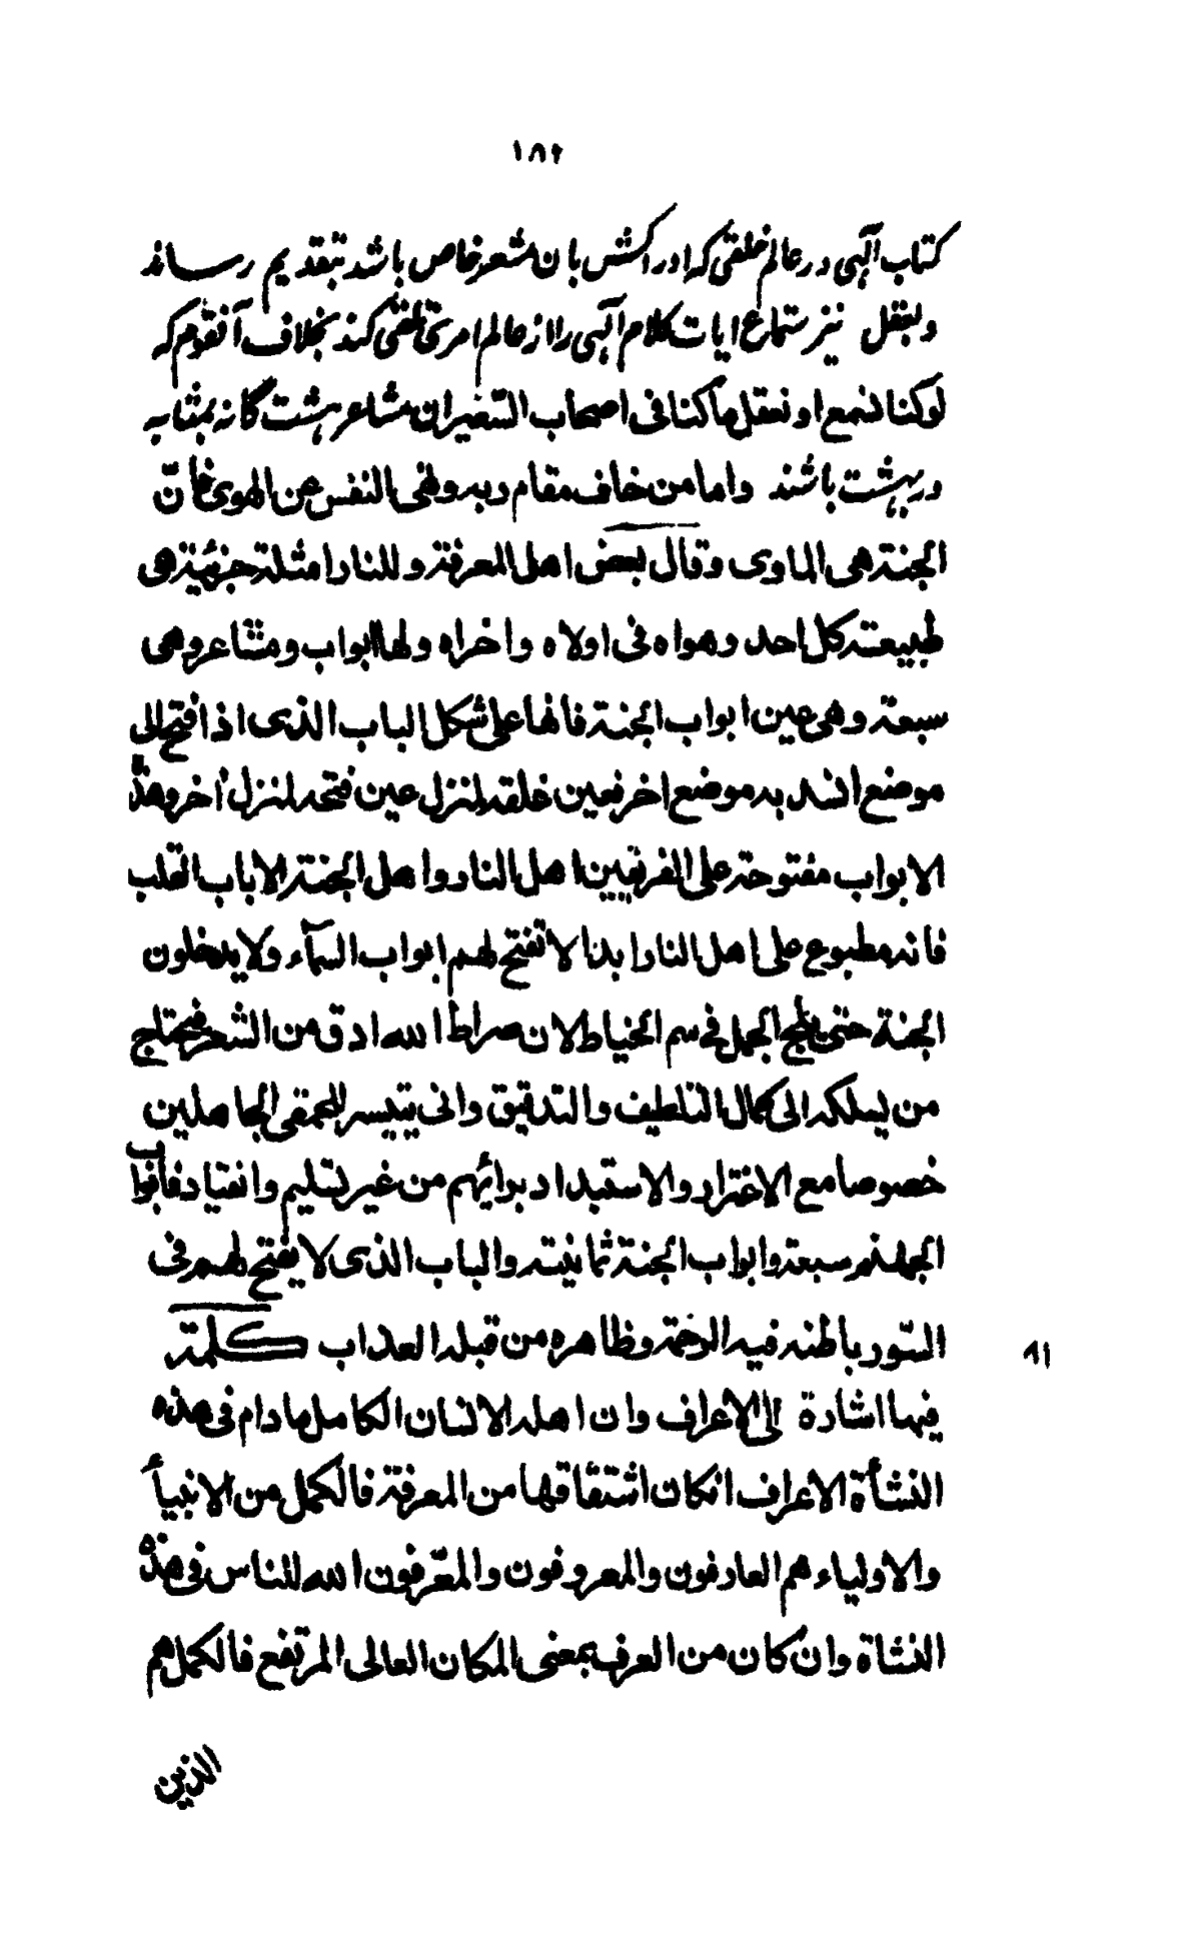 ١٨٢
كتاب آلهى در عالم خلقى كه ادراكش بان مشعر خاص باشد بتقديم رساند
وبعقل نيز ستماع ايات كلام آلهى را از عالم امرى تلقى كند بخلاف آنقوم كه
لوكنا نسمع او نعقل ماكنا فى اصحاب السّعير ان مشاعر هشت گانه بمثابه
در بهشت باشند واما من خاف مقام ربه ونهى النفس عن الهوى فانّ
الجنة هى الماوى وقال بعض اهل المعرفة وللنار امثلة جزئية هى
طبيعته كل احد وهواه فى اولاه واخراه ولها ابواب ومشاعر وهى
سبعة وهى عين ابواب الجنة فانها على شكل الباب الذى اذا فتح الى
موضع انسد به موضع اخر فعين غلقه لمنزل عين فتحه لمنزل آخر وهذه
الابواب مفتوحة على الفريقين اهل النار واهل الجنة الا باب القلب
فانه مطبوع على اهل النار ابدا لا تفتح لهم ابواب السمآء ولا يدخلون
الجنة حتى يلج الجمل فى سم الخياط لان صراط الله ادق من الشعر فيحتاج
من يسلكه الى كمال التلطيف والتدقيق وانى يتيسر للحمقى الجاهلين
خصوصا مع الاغترار والاستبداد برائهم من غير تسليم وانقياد فابواب
الجهنم سبعة وابواب الجنة ثمانيته والباب الذى لا يفتح لهم فى
السّور باطنه فيه الرحمة وظاهره من قبله العذاب كلمة
٩١
فيها اشارة الى الاعراف وان اهله الانسان الكامل مادام فى هذه
النشأة الاعراف انكان اشتقاقها من المعرفة فالكمل من الانبيأ
والاولياء هم العارفون والمعروفون والمعّرفون الله للناس فى هذه
النشاة وان كان من العرف بمعنى المكان العالى المرتفع فالكمل هم
الذين